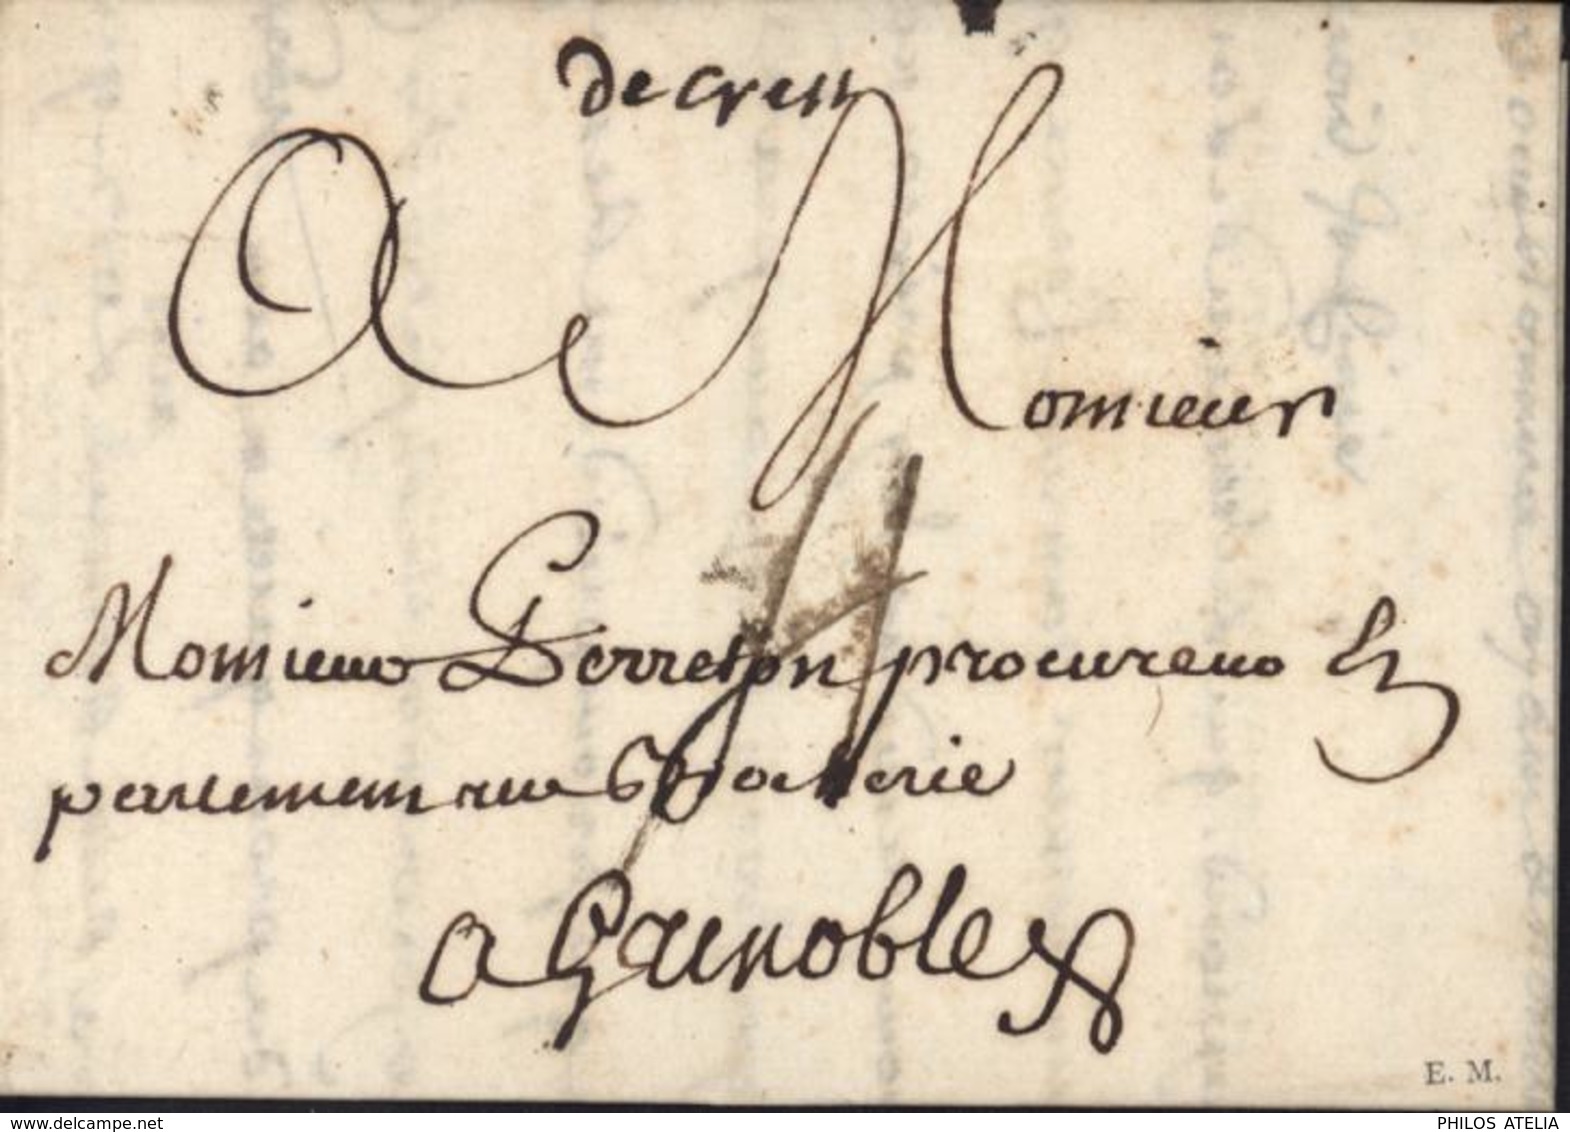 de crest
A Monsieur
Monsieur Perreton procureur en
parlement rue Brocherie
a Grenoble
E. M.
delcampe.net
PHILOS ATELIA